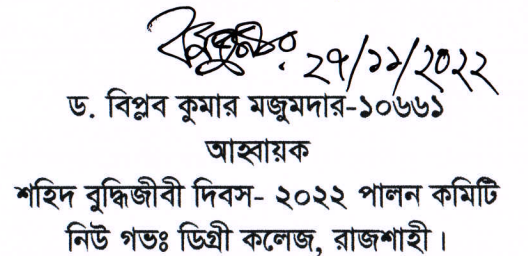 ২৭/১১/২০২২
ড. বিপ্লব কুমার মজুমদার-১০৬৬১
আহ্বায়ক
শহিদ বুদ্ধিজীবী দিবস- ২০২২ পালন কমিটি
নিউ গভঃ ডিগ্রী কলেজ, রাজশাহী।